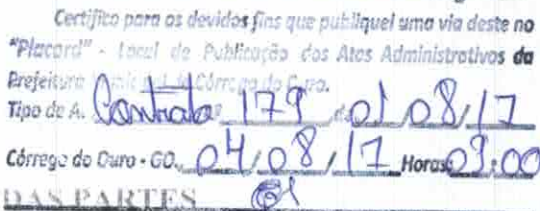 Certifico para os devidos fins que publiquei uma via deste no
"Placard" - Local de Publicação dos Atos Administrativos da
Prefeitura Municipal de Córrego do Ouro.
Tipo de A. Contrato nº 179 de 01/08/17
Córrego do Ouro - GO., 04/08/17 Horas 09:00
DAS PARTES